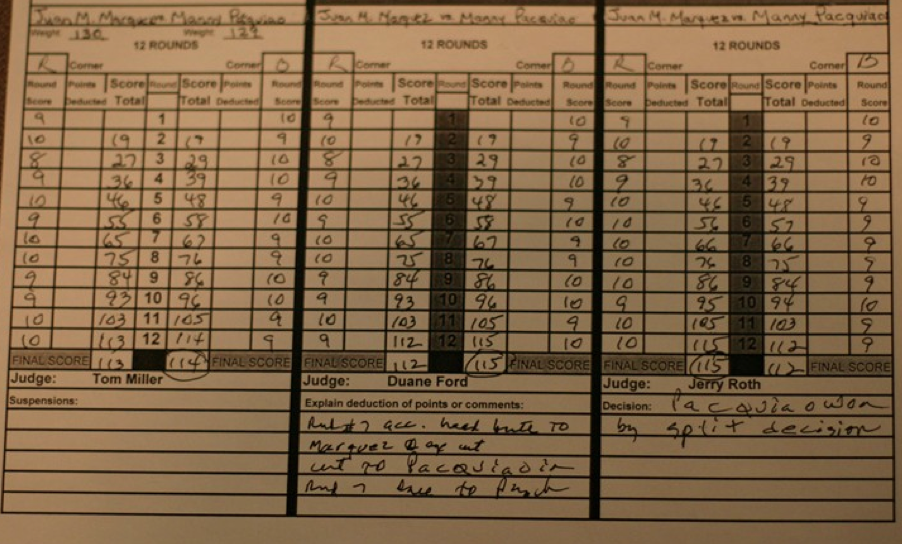 Juan M. Marquez vs Manny Pacquiao Juan M. Marquez vs. Manny Pacquiao Juan M. Marquez vs. Manny Pacquiao
Weight: 130 Weight: 129
12 ROUNDS 12 ROUNDS 12 ROUNDS
R Corner Corner B R Corner Corner B R Corner Corner B
Round Points Score Round Score Points Round Round Points Score Round Score Points Round Round Points Score Round Score Points Round
Score Deducted Total Total Deducted Score Score Deducted Total Total Deducted Score Score Deducted Total Total Deducted Score
9 1 10 9 1 10 9 1 10
10 19 2 19 9 10 19 2 19 9 10 19 2 19 9
8 27 3 29 10 8 27 3 29 10 8 27 3 29 10
9 36 4 39 10 9 36 4 39 10 9 36 4 39 10
10 46 5 48 9 10 46 5 48 9 10 46 5 48 9
9 55 6 58 10 9 55 6 58 10 10 56 6 57 9
10 65 7 67 9 10 65 7 67 9 10 66 7 66 9
10 75 8 76 9 10 75 8 76 9 10 76 8 75 9
9 84 9 86 10 9 84 9 86 10 10 86 9 84 9
9 93 10 96 10 9 93 10 96 10 9 95 10 94 10
10 103 11 105 9 10 103 11 105 9 10 105 11 103 9
10 113 12 114 9 9 112 12 115 10 10 115 12 112 9
FINAL SCORE 113 114 FINAL SCORE FINAL SCORE 112 115 FINAL SCORE FINAL SCORE 115 112 FINAL SCORE
Judge: Tom Miller Judge: Duane Ford Judge: Jerry Roth
Suspensions: Explain deduction of points or comments: Decision: Pacquiao won
Rnd #7 acc. head butt TO by split decision
Marquez cut
cut TO Pacquiao in
Rnd 7 due to Punch